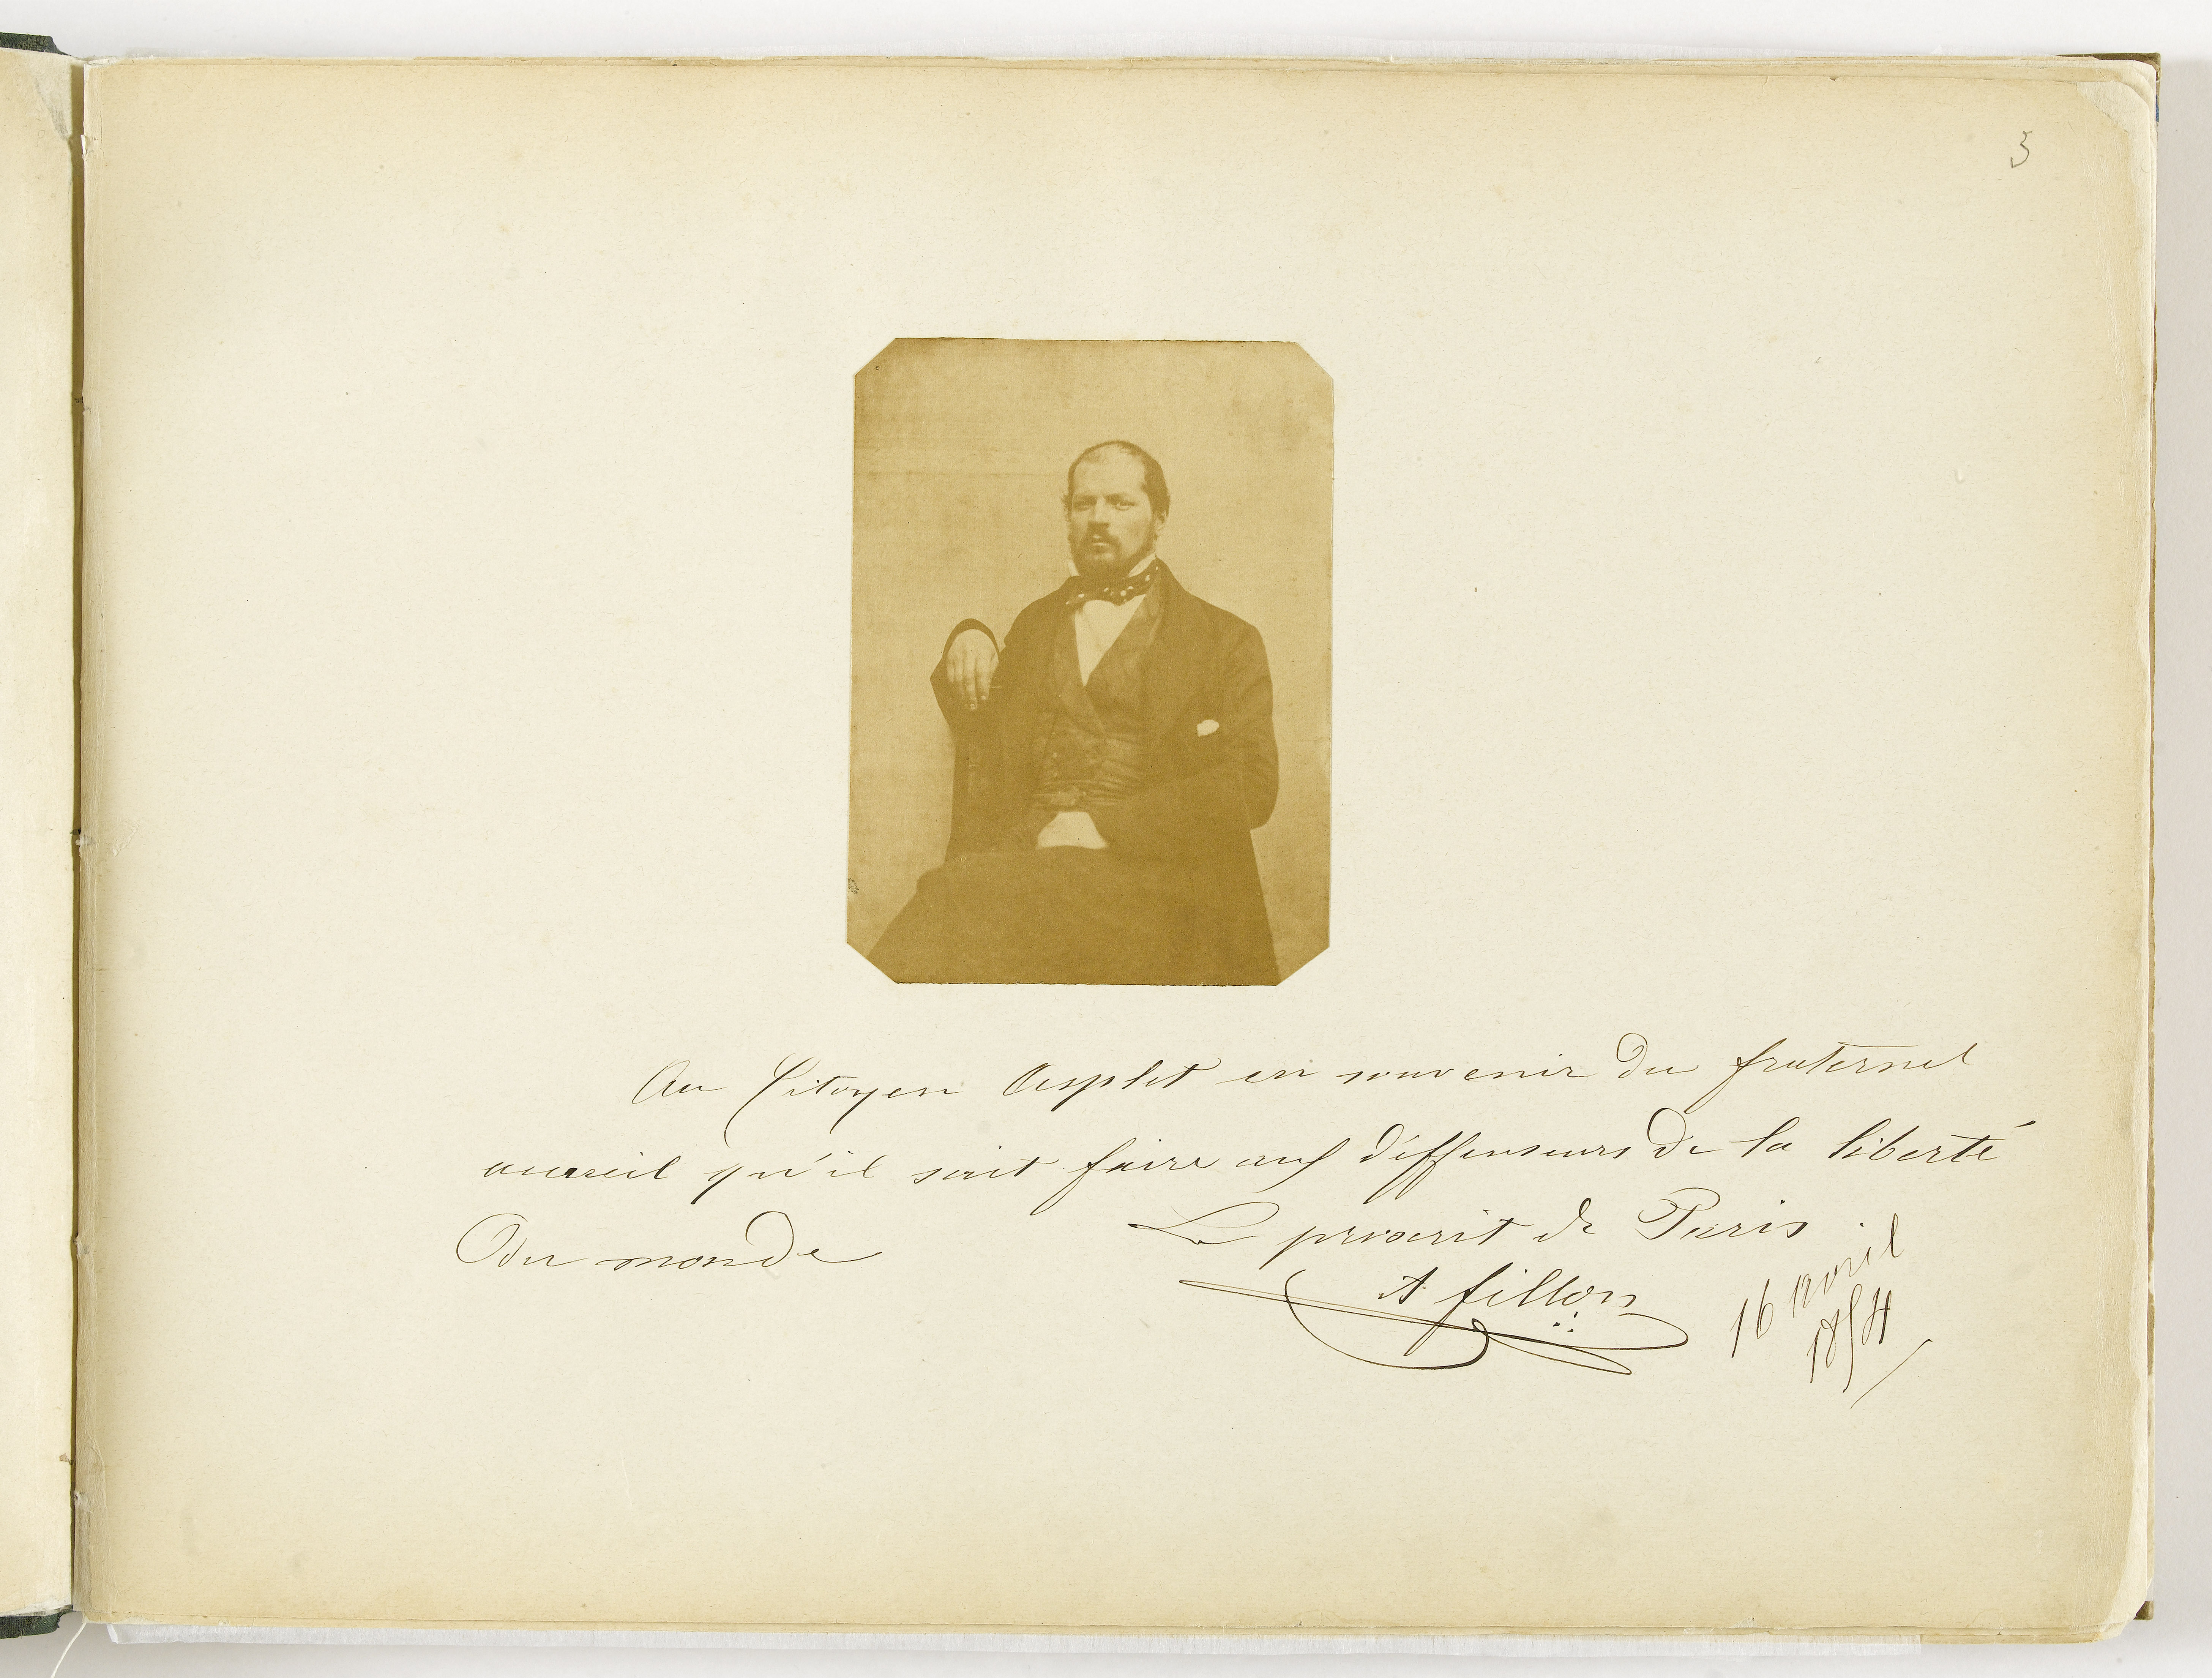 3
Au Citoyen Asplet en souvenir du fraternel
accueil qu'il sait faire aux déffenseurs de la liberté
du monde
Le proscrit de Paris
A fillon
16 avril
1854